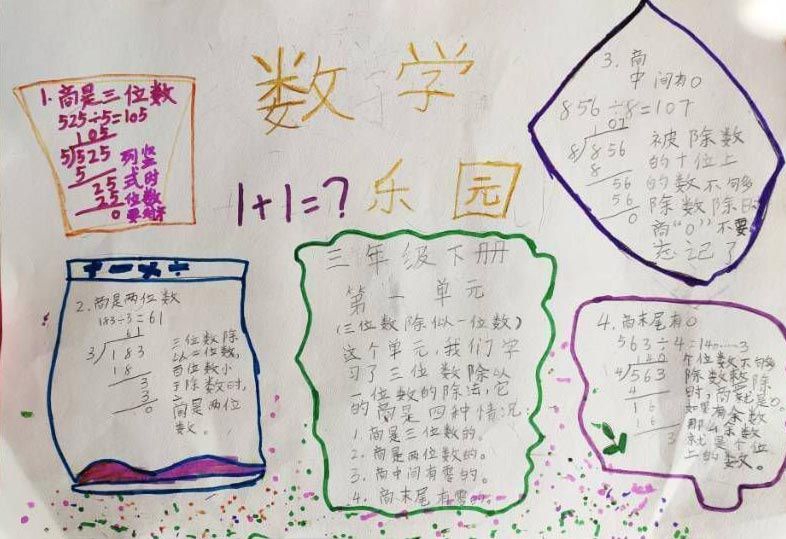 数学
1+1=?乐园
1.商是三位数
525÷5=105
105
5525
5
25
25
0
列竖
式时
位数
要对齐
2.商是两位数
183÷3=61
61
3183
18
3
3
0
三位数除
以一位数,
百位数小
于除数时,
商是两位
数。
三年级下册
第一单元
(三位数除以一位数)
这个单元,我们学
习了三位数除以
一位数的除法,它
的商是四种情况:
1.商是三位数的。
2.商是两位数的。
3.商中间有零的。
4.商末尾有零的
3.商
中间有0
856÷8=107
107
8856
8
56
56
0
被除数
的十位上
的数不够
除数除时
商“0”不要
忘记了
4.商末尾有0
563÷4=140……3
140
4563
4
16
16
3
个位数不够
除数整除
时,商就是0。
如果有余数
那么余数
就是个位
上的数。